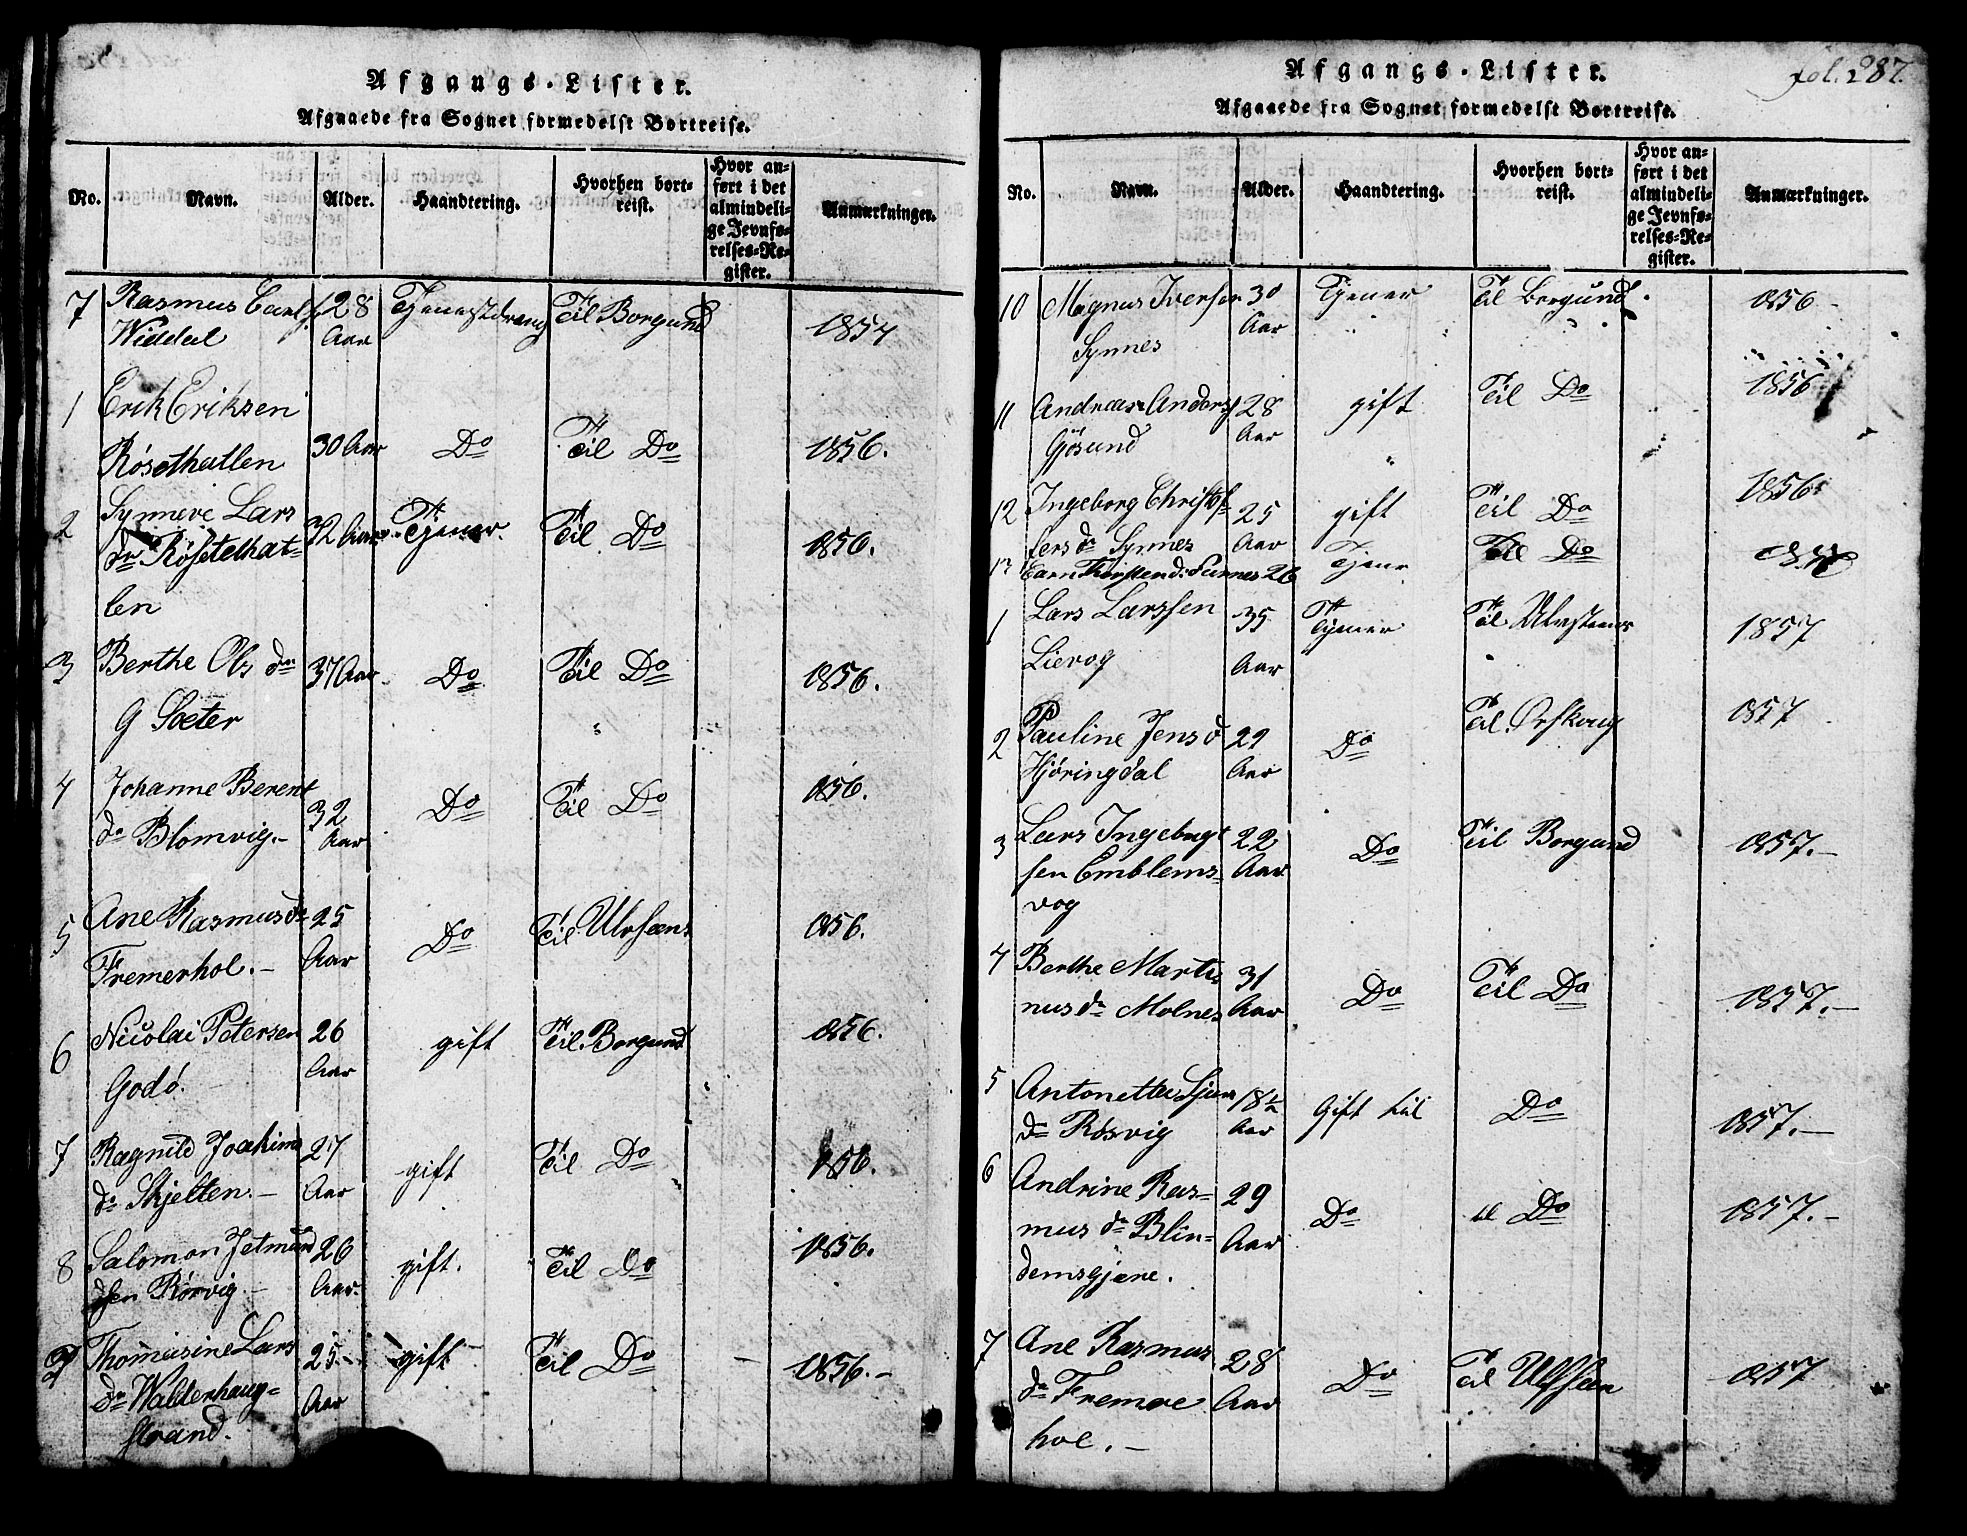 Afgangs-Lister.
Afgaaede fra Sognet formedelst Bortreise.
No. Navn. Alder. Haandtering. Hvorhen bortreist. Hvor anført i det almindelige Jevnførelses-Register. Anmærkninger.
7 Rasmus Carls. 28 Tjenestdreng Til Borgund 1854
Widdal Aar
1 Erik Eriksen
Røsethatlen 30 Aar Do Til Do 1856.
2 Synneve Lars 32 Aar Tjener. Til Do 1856.
dr Røsetelhat=
len
3 Berthe Ols dr 37 Aar Do Til Do 1856.
G Sæter
4 Johanne Berent 32 Do Til Do 1856.
dr Blomvig.- Aar
5 Ane Rasmusdr 25 Do Til 1856.
Fremerhol.- Aar
6 Nicolai Petersen 26 gift Til Borgund 1856.
Godø. Aar
7 Ragnild Joakim 27 gift Til Do 1856.
dr Skjelten.- Aar
8 Salomon Jetmund 26 gift. Til Do 1856.
sen Rørvig.- Aar
9 Thomasine Lars 25.- gift Til Do 1856.-
dr Walderhaug= Aar
strand.
Afgangs-Lister. fol. 287.
Afgaaede fra Sognet formedelst Bortreise.
No. Navn. Alder. Haandtering. Hvorhen bortreist. Hvor anført i det almindelige Jevnførelses-Register. Anmærkninger.
10 Magnus Iversen 30 Tjener Til Borgund. 1856-
Synnes Aar
11 Andreas Anders 28 gift Til Do 1856
Gjøsund Aar
12 Ingeborg Christof= 25 gift Til Do 1856
fers dr Synnes Aar
13 26 Tjener Til Do
1 Lars Larssen 35 Tjener Til 1857
Lievog Aar
2 Pauline Jens d 22 Do Til Ørskoug 1857
Hjøringdal Aar
3 Lars Ingebrigt 22 Do Til Borgund 1857.-
sen Emblems= Aar
vog
4 Berthe Marti 31 Do Til Do 1857.-
nus dr Molnes Aar
5 Antonette 18½ Gift til Do 1857.-
dr Røsvig Aar
6 Andrine Ras= 29 Do til Do 1857.-
mus dr Blin= Aar
demsgjære.
7 Ane Rasmus 28 Do Til 1857
dr Fremre Aar
hol.-